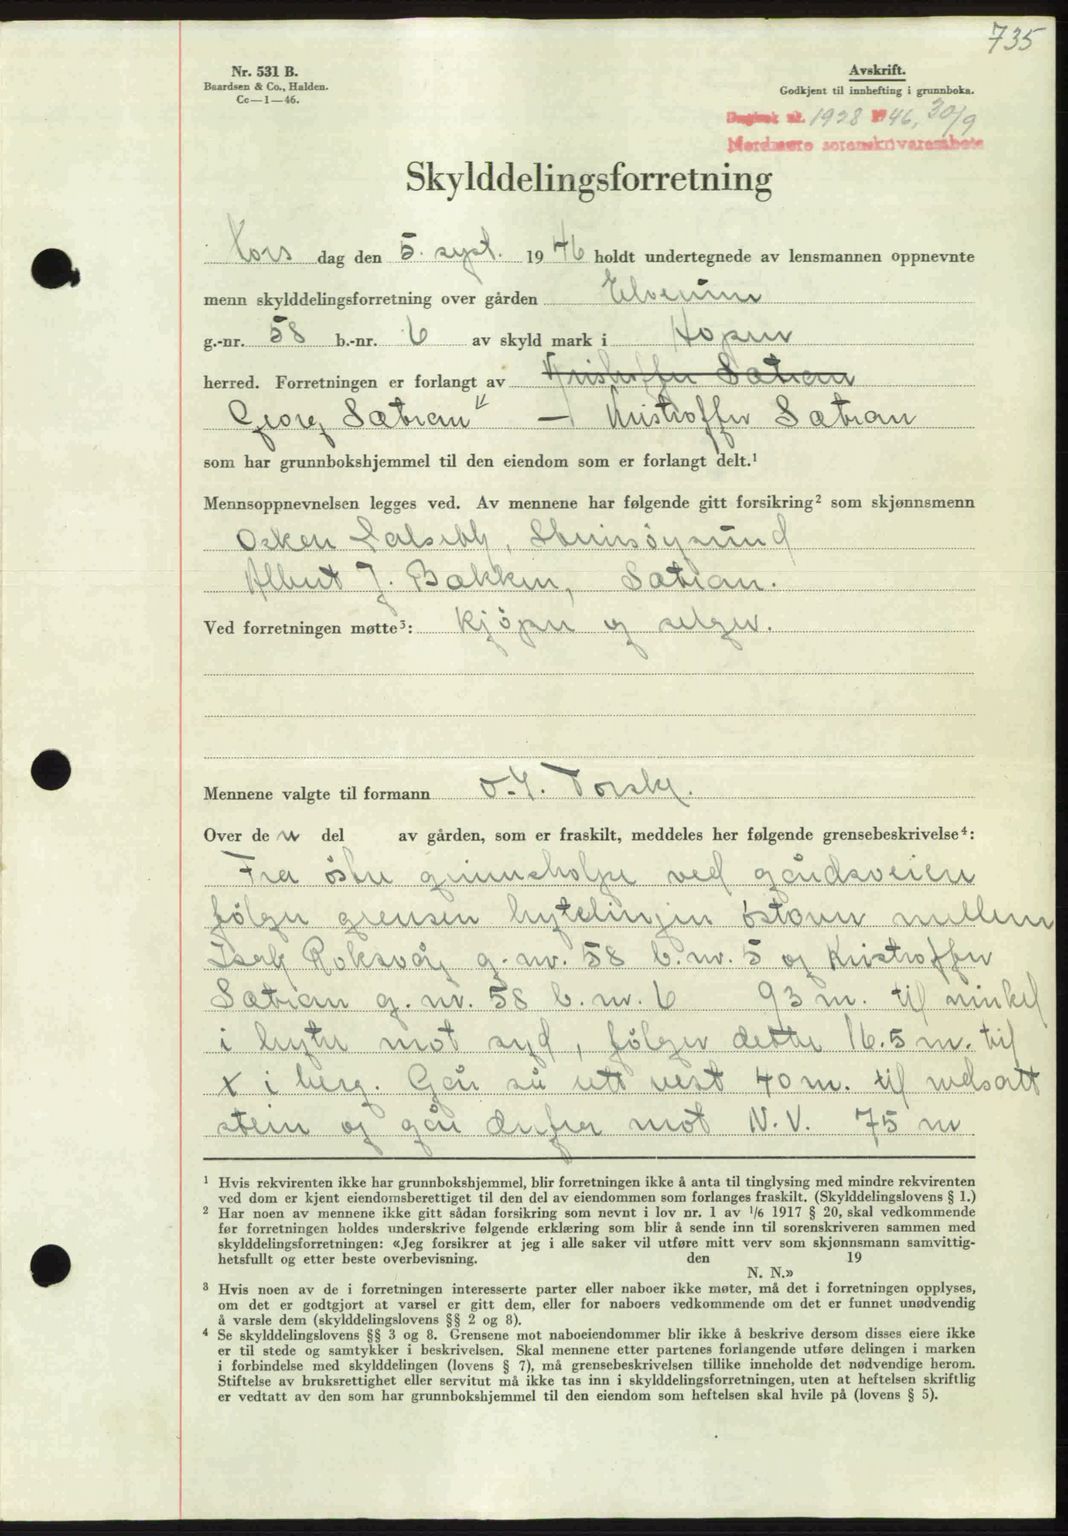 735
Nr. 531 B.
Baardsen & Co., Halden.
Cc—1—46.
Avskrift.
Godkjent til innhefting i grunnboka.
Dagbok nr. 1928 1946, 30/9
Nordmøre sorenskriverembete
Skylddelingsforretning
Tors dag den 5. sept. 1946 holdt undertegnede av lensmannen oppnevnte
menn skylddelingsforretning over gården Elverum
g.-nr. 58 b.-nr. 6 av skyld mark i Hopen
herred. Forretningen er forlangt av Kristoffer Sætran
Georg Sætran — Kristoffer Sætran
som har grunnbokshjemmel til den eiendom som er forlangt delt.¹
Mennsoppnevnelsen legges ved. Av mennene har følgende gitt forsikring² som skjønnsmenn
Osken
Albert J. Bakken, Sætran.
Ved forretningen møtte³: Kjøper og selger.
Mennene valgte til formann O. J. Torsky.
Over de n del av gården, som er fraskilt, meddeles her følgende grensebeskrivelse⁴:
Fra østre grinnstolpe ved gårdsveien
følger grensen bytelinjen østover mellem
Isak Roksvåg g.nr. 58 b.nr. 5 og Kristoffer
Sætran g.nr. 58 b.nr. 6 93 m. til vinkel
i byte mot syd, følger dette 16.5 m. til
x i berg. Går så rett vest 40 m. til nedsatt
stein og går derfra mot N.V. 75 m
¹ Hvis rekvirenten ikke har grunnbokshjemmel, blir forretningen ikke å anta til tinglysing med mindre rekvirenten
ved dom er kjent eiendomsberettiget til den del av eiendommen som forlanges fraskilt. (Skylddelingslovens § 1.)
² Har noen av mennene ikke gitt sådan forsikring som nevnt i lov nr. 1 av 1/6 1917 § 20, skal vedkommende
før forretningen holdes underskrive følgende erklæring som blir å sende inn til sorenskriveren sammen med
skylddelingsforretningen: «Jeg forsikrer at jeg i alle saker vil utføre mitt verv som skjønnsmann samvittig-
hetsfullt og etter beste overbevisning. den 19
N. N.»
³ Hvis noen av de i forretningen interesserte parter eller naboer ikke møter, må det i forretningen opplyses,
om det er godtgjort at varsel er gitt dem, eller for naboers vedkommende om det er funnet unødvendig
å varsle dem (skylddelingslovens §§ 2 og 8).
⁴ Se skylddelingslovens §§ 3 og 8. Grensene mot naboeiendommer blir ikke å beskrive dersom disses eiere ikke
er til stede og samtykker i beskrivelsen. Skal mennene etter partenes forlangende utføre delingen i marken
i forbindelse med skylddelingen (lovens § 7), må grensebeskrivelsen tillike inneholde det nødvendige herom.
Stiftelse av bruksrettighet eller servitut må ikke tas inn i skylddelingsforretningen, uten at heftelsen skriftlig
er vedtatt av den som har grunnbokshjemmel til den eiendom som heftelsen skal hvile på (lovens § 5).